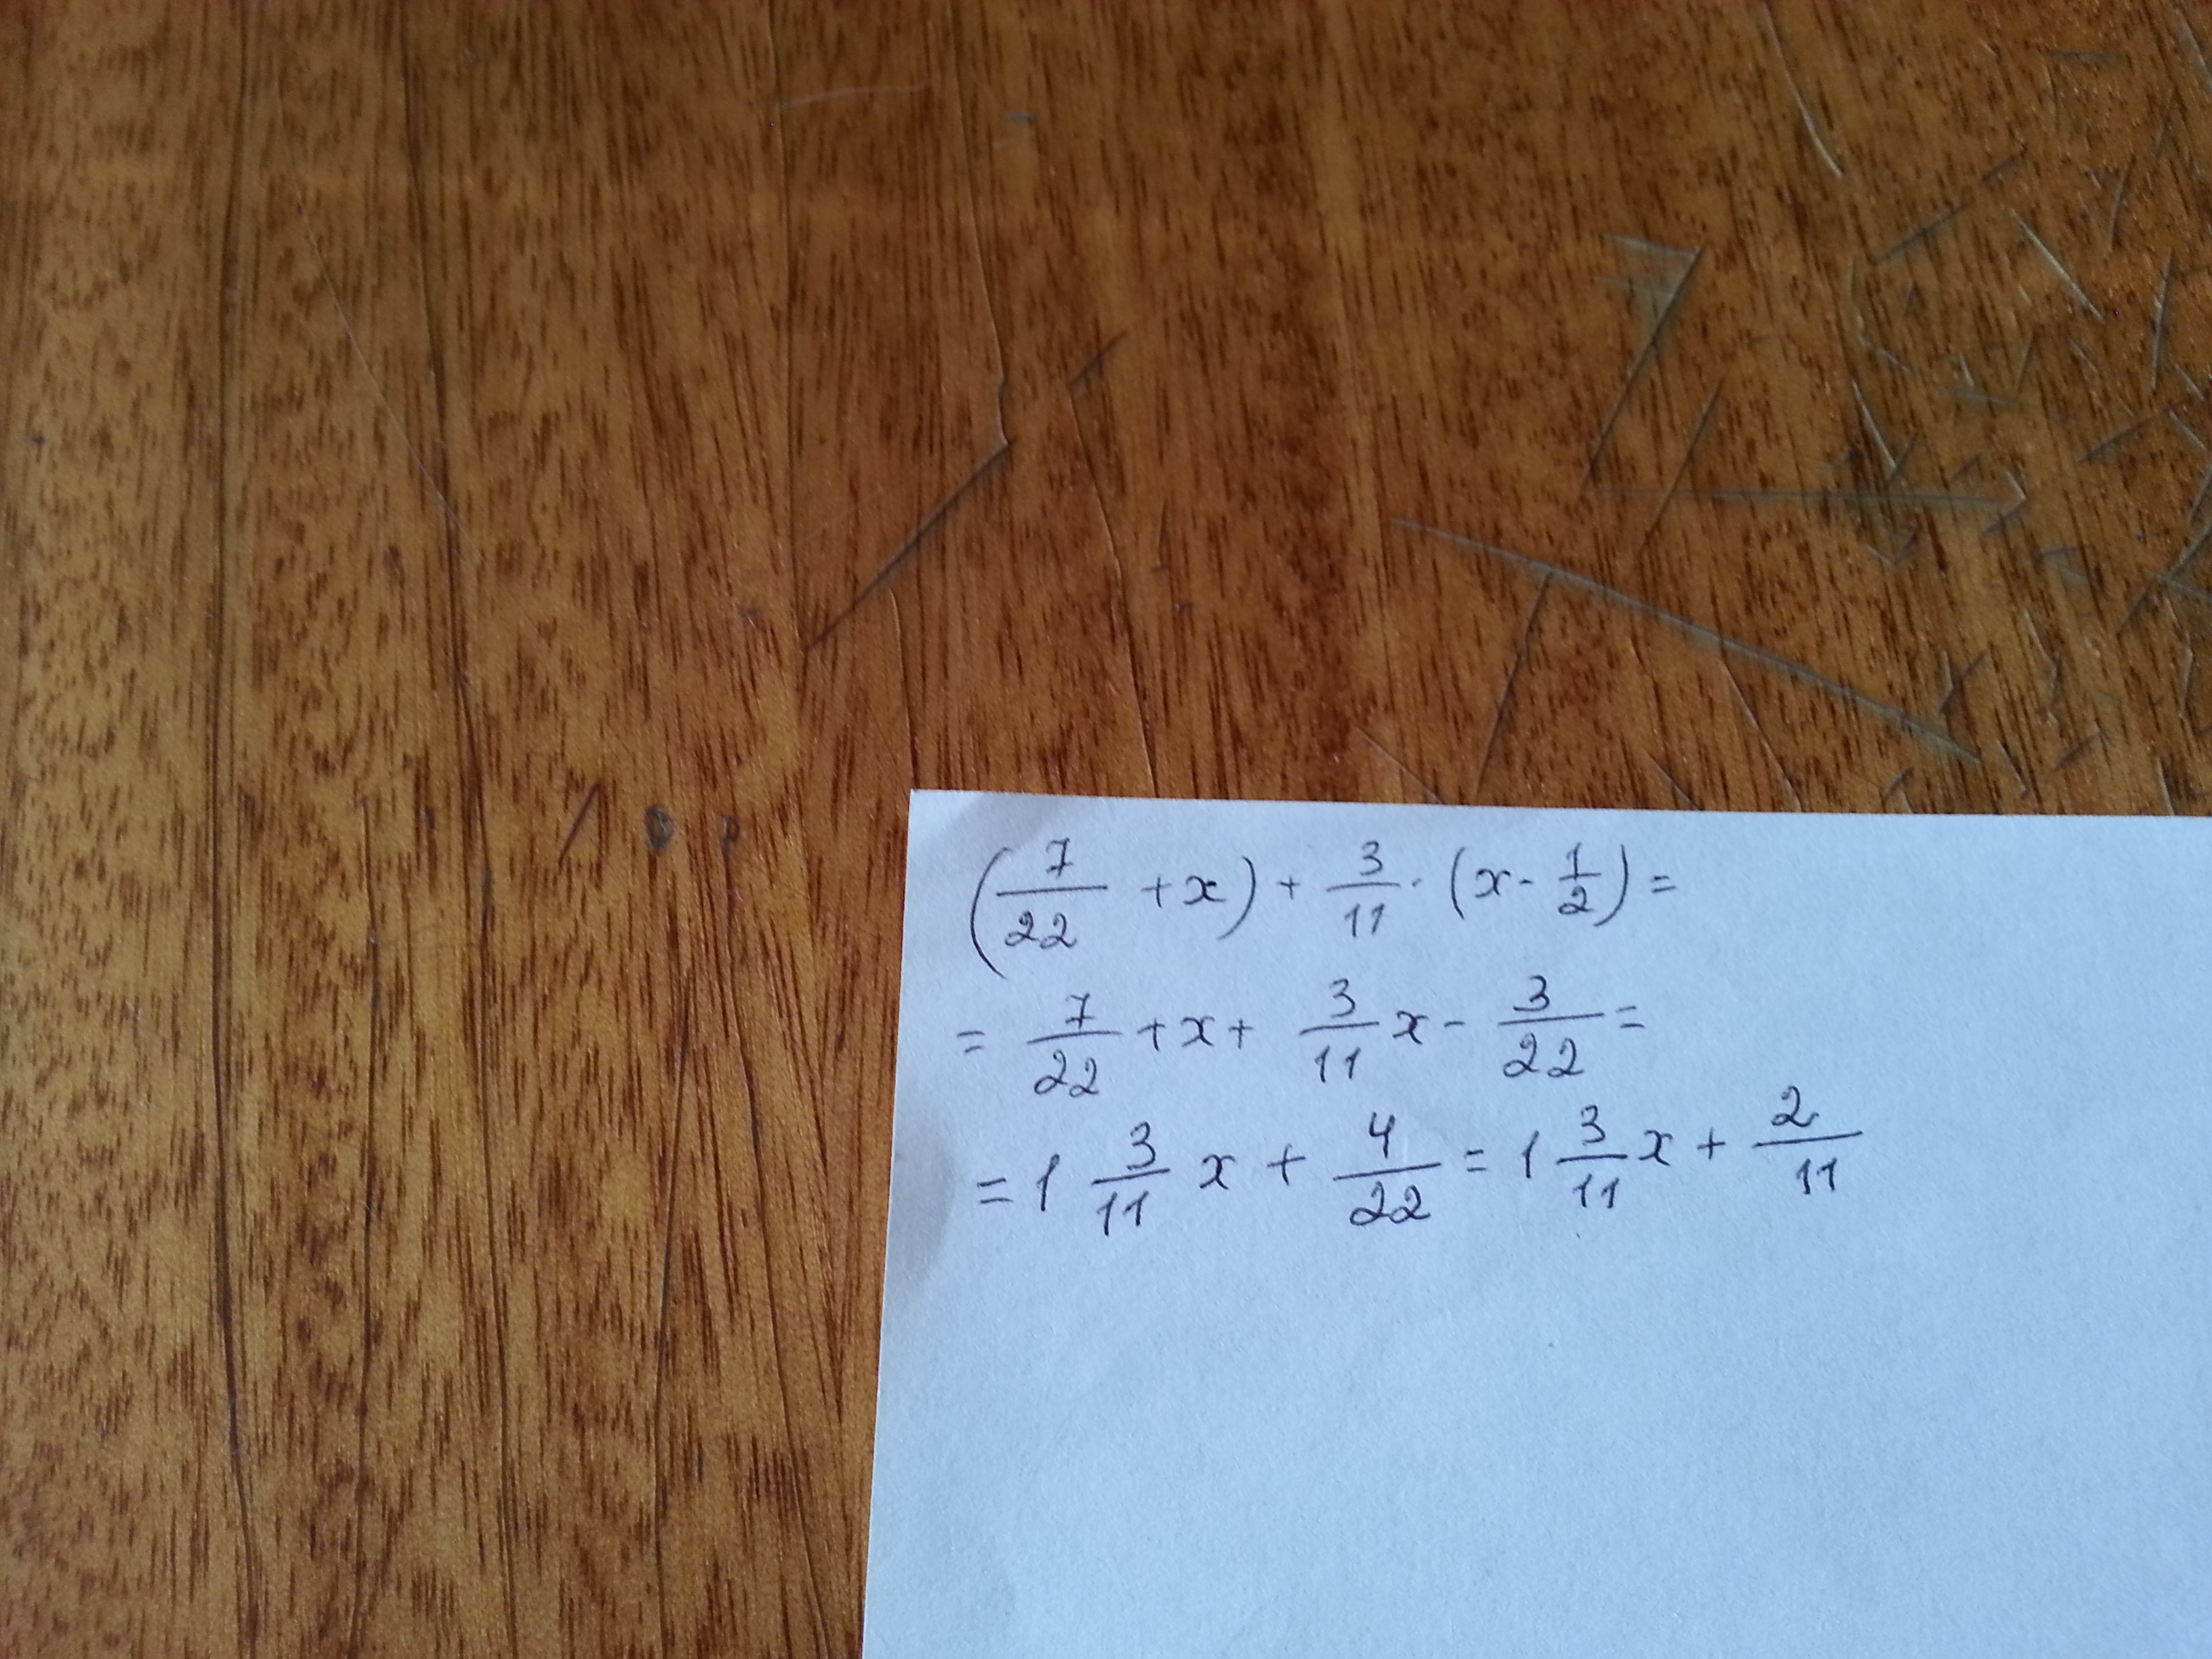 (7/22 + x) + 3/11 · (x - 1/2) =
= 7/22 + x + 3/11 x - 3/22 =
= 1 3/11 x + 4/22 = 1 3/11 x + 2/11